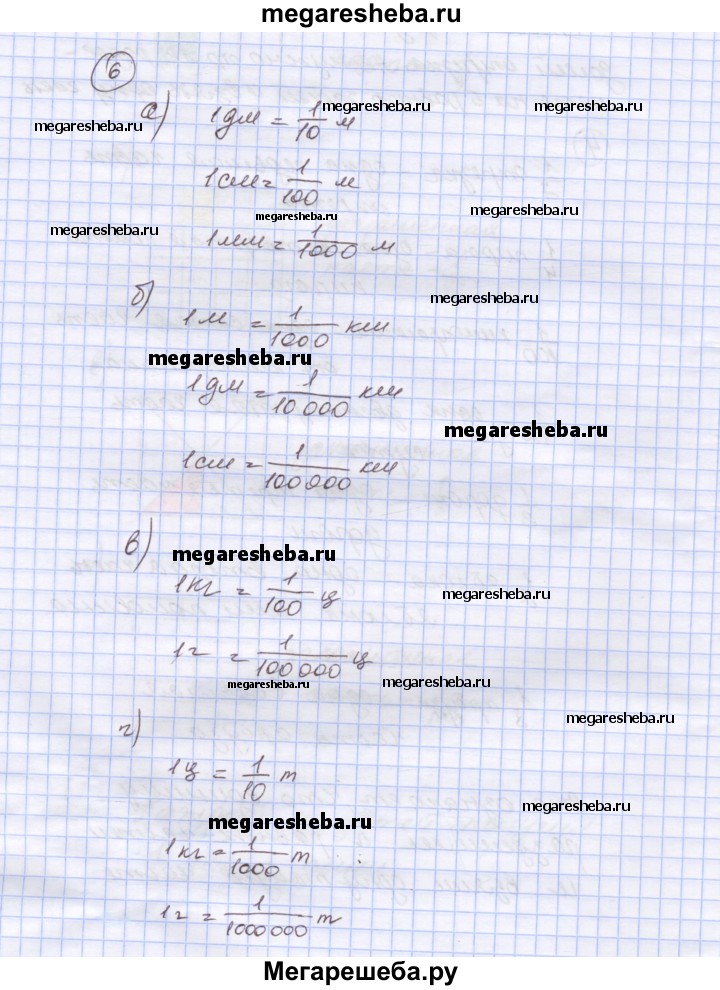 megaresheba.ru
6
а) 1дм = 1/10 м
megaresheba.ru
megaresheba.ru
1см = 1/100 м
megaresheba.ru
megaresheba.ru
megaresheba.ru
1мм = 1/1000 м
б) 1м = 1/1000 км
megaresheba.ru
megaresheba.ru
1дм = 1/10 000 км
megaresheba.ru
1см = 1/100 000 км
в)
megaresheba.ru
1кг = 1/100 ц
megaresheba.ru
1г = 1/100 000 ц
megaresheba.ru
megaresheba.ru
г)
megaresheba.ru
1ц = 1/10 т
megaresheba.ru
megaresheba.ru
1кг = 1/1000 т
1г = 1/1000 000 т
Мегарешеба.ру